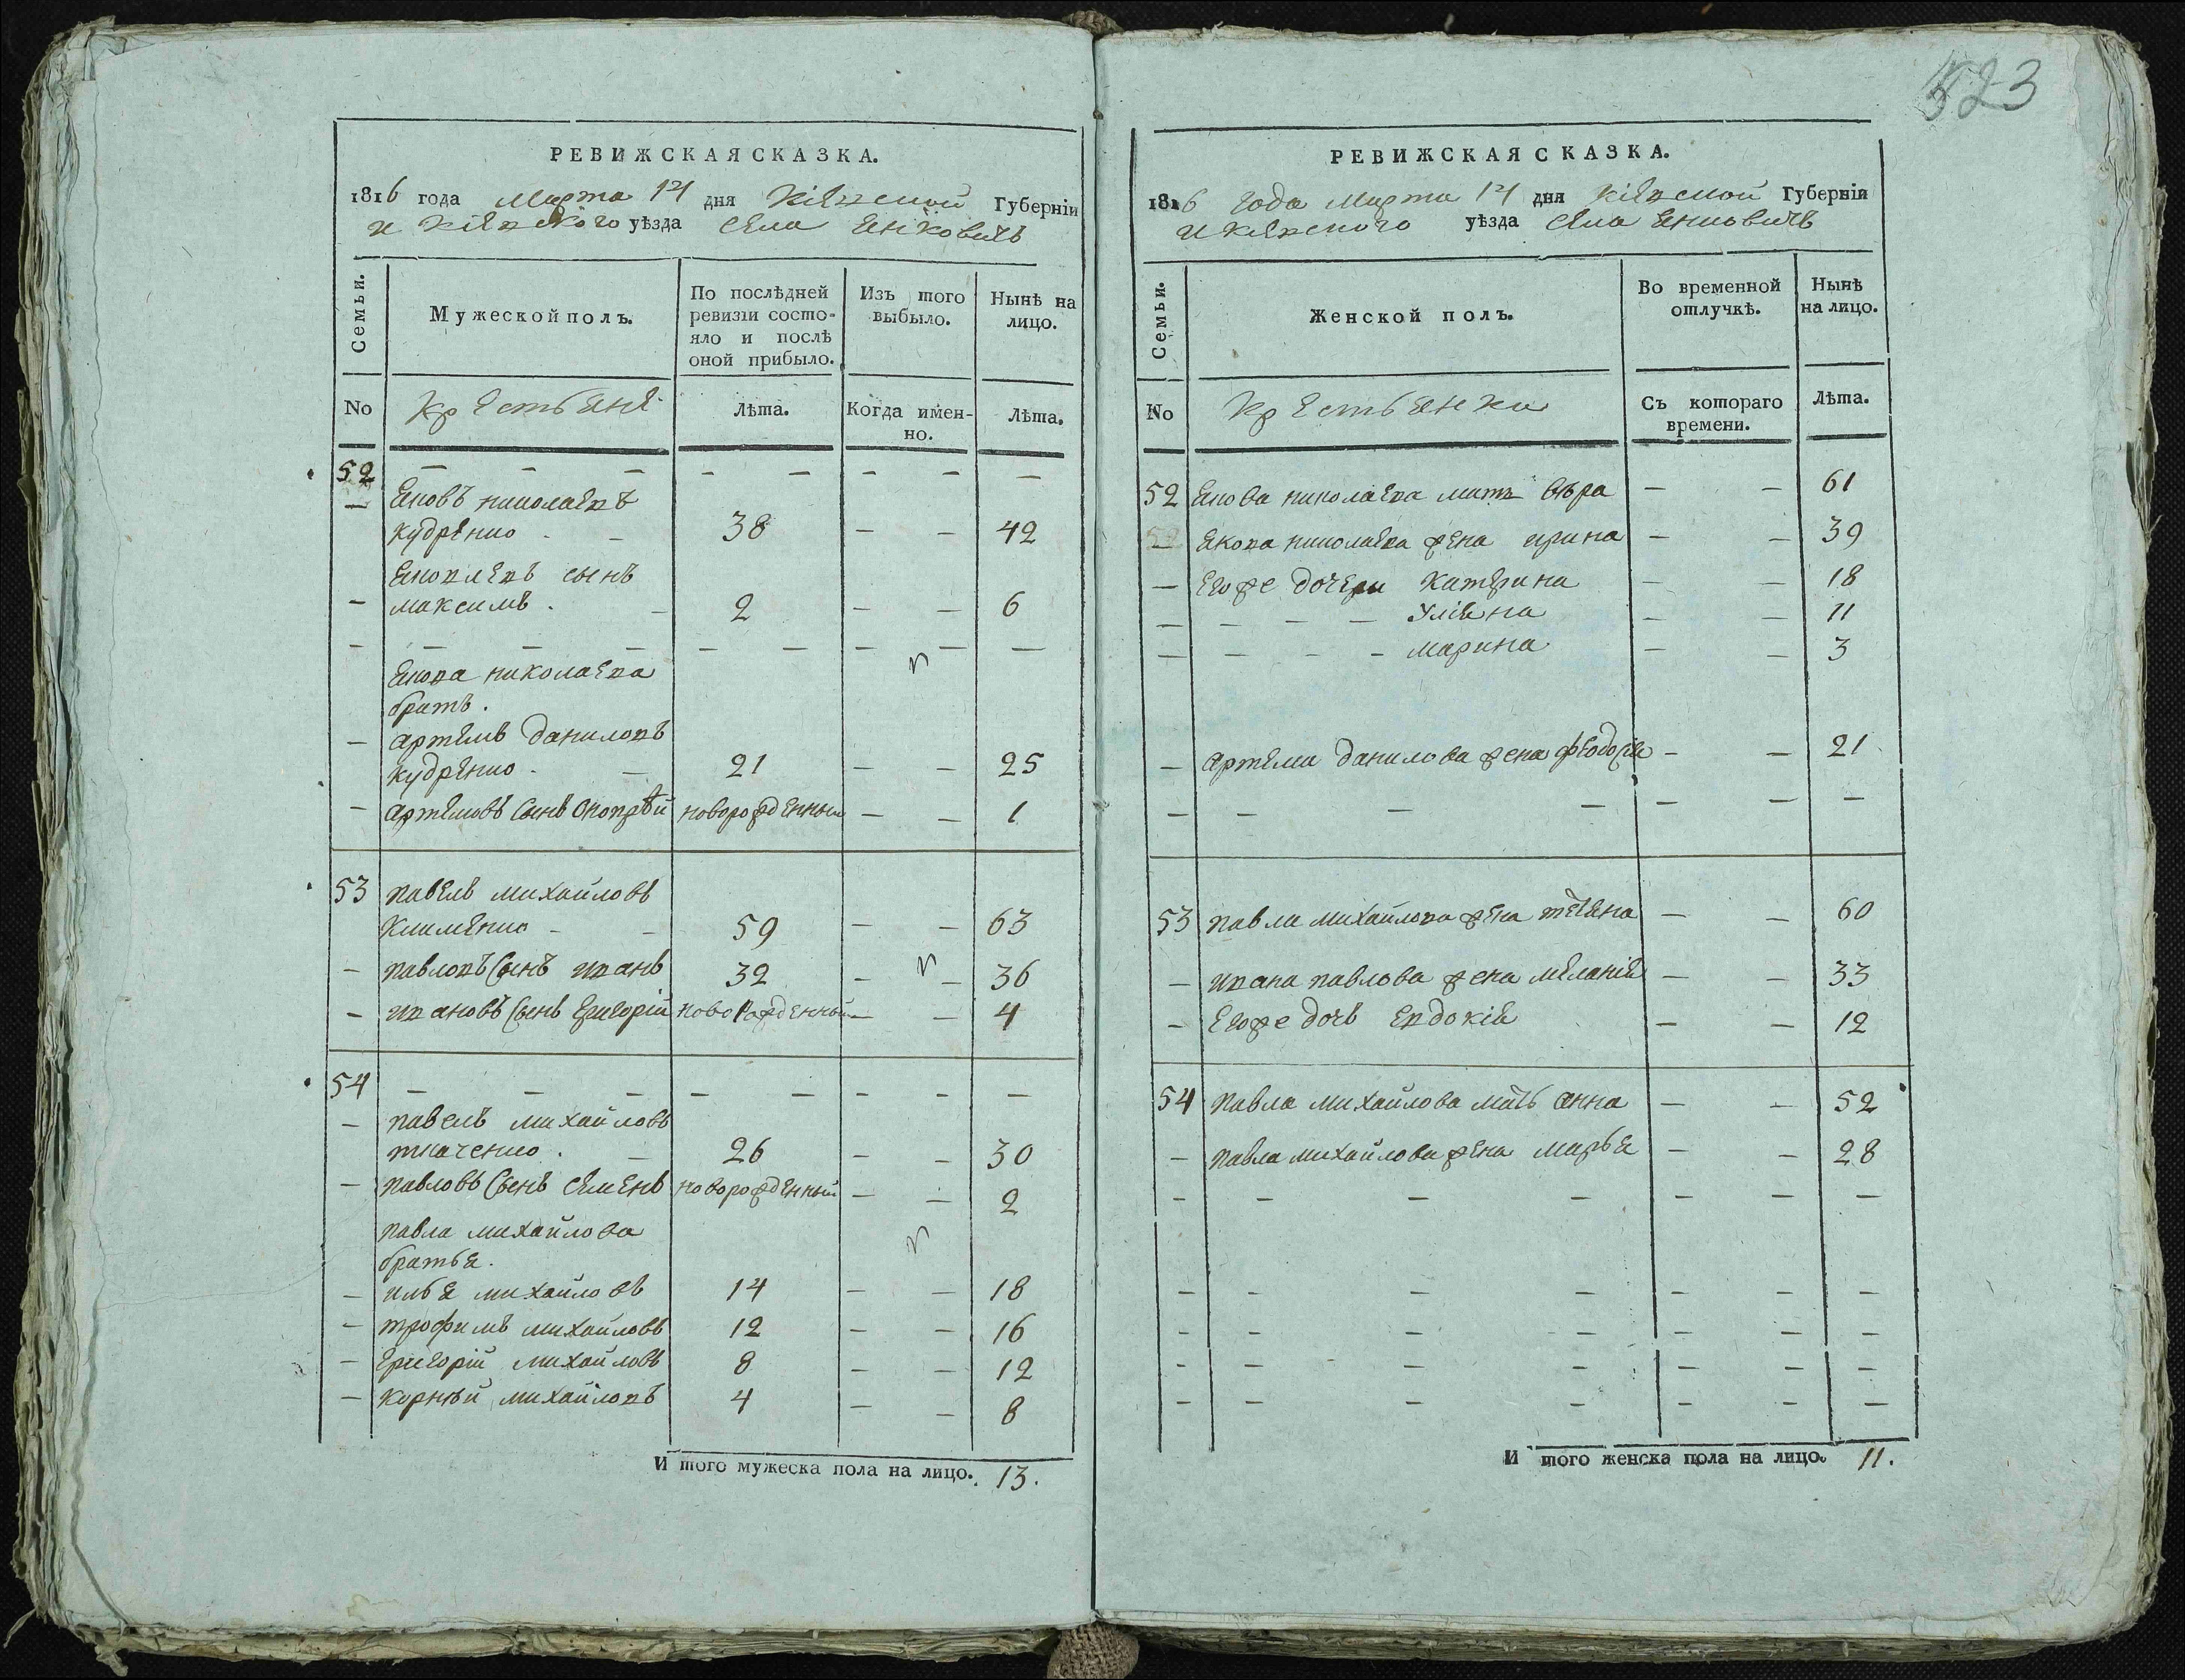 523
РЕВИЖСКАЯ СКАЗКА.
1816 года Марта 14 дня Кіевской Губерніи
и Кіевского уѣзда села Янковичь
Семьи. Мужеской полъ. По послѣдней ревизіи состояло и послѣ оной прибыло. Изъ того выбыло. Нынѣ на лицо.
No Крестьяне Лѣта. Когда именно. Лѣта.
52 — — — — — — — —
— Яковъ николаевъ
кудренко - — 38 — — 42
Яковлевъ сынъ
— максимъ . — 2 — — 6
— — — — — — — — —
Якова николаева
братъ.
— артемъ даниловъ
кудренко - — 21 — — 25
— артемовъ сынъ Онопрѣй новорожденный — — 1
53 павелъ михайловъ
Клименко - — 59 — — 63
— павловъ сынъ иванъ 32 — — 36
— ивановъ сынъ григорій новорожденный — — 4
54 — — — — — — — —
— павелъ михайловъ
ткаченко . — 26 — — 30
— павловъ сынъ семенъ новорожденный — — 2
павла михайлова
братья.
— илья михайловъ 14 — — 18
— трофимъ михайловъ 12 — — 16
— григорій михайловъ 8 — — 12
— корнѣй михайловъ 4 — — 8
И того мужеска пола на лицо. 13.
РЕВИЖСКАЯ СКАЗКА.
1816 года Марта 14 дня Кіевской Губерніи
и Кіевского уѣзда села Янковичь
Семьи. Женской полъ. Во временной отлучкѣ. Нынѣ на лицо.
No Крестьянки Съ котораго времени. Лѣта.
52 Якова николаева мать вѣра — — 61
— Якова николаева жена ирина — — 39
— Его же дочери Катерина — — 18
— — — — Уліяна — — 11
— — — — марина — — 3
— артема данилова жена феодосія — — 21
— — — — — — —
53 павла михайлова жена тетяна — — 60
— ивана павлова жена меланія — — 33
— Его же дочь Евдокія — — 12
54 павла михайлова мать анна — — 52
— павла михайлова жена марья — — 28
— — — — — — —
— — — — — — —
— — — — — — —
— — — — — — —
— — — — — — —
И того женска пола на лицо. 11.